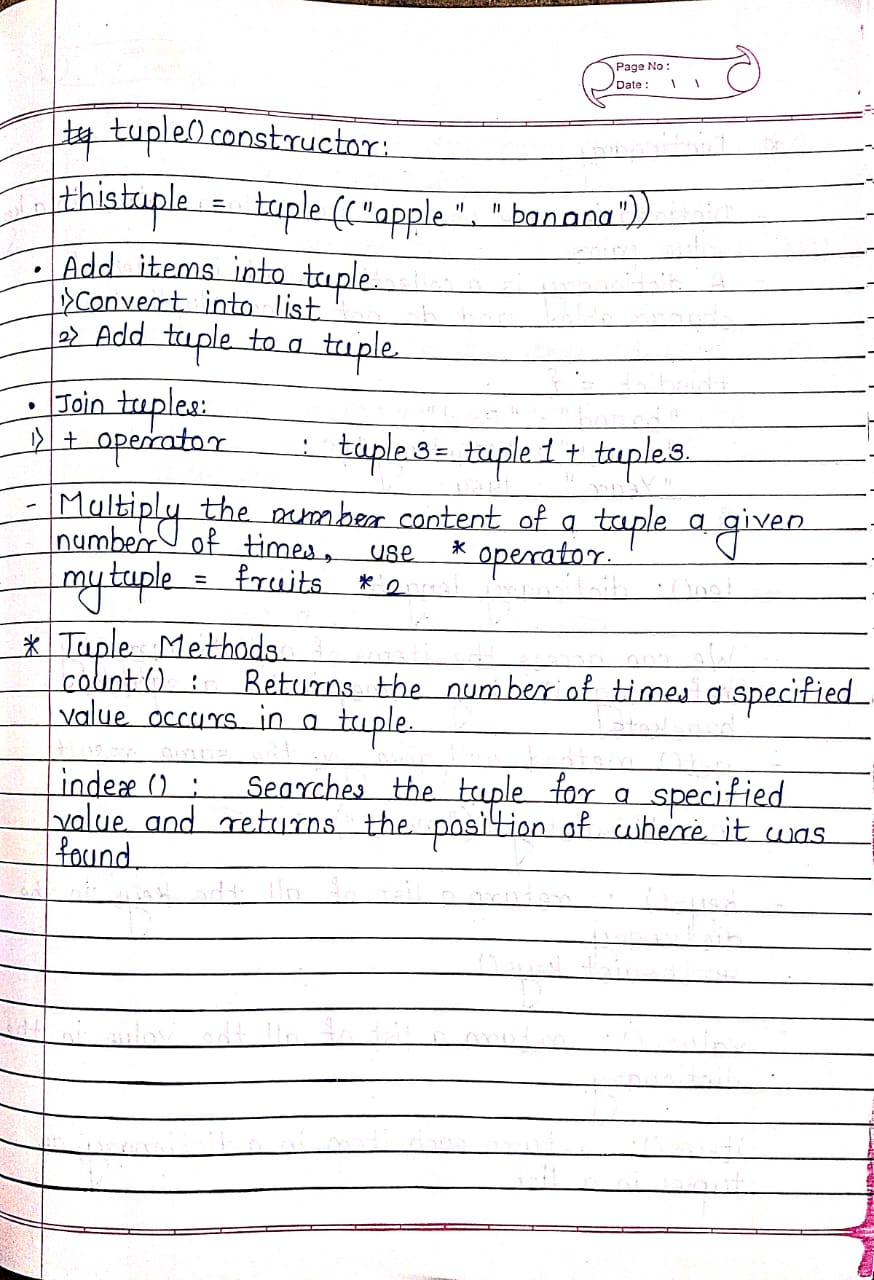 Page No :
Date : \ \
tuple() constructor:
thistuple = tuple (("apple", "banana"))
• Add items into tuple.
1) Convert into list
2) Add tuple to a tuple
• Join tuples:
1) + operator : tuple3 = tuple1 + tuple3.
- Multiply the number content of a tuple a given
number of times, use * operator.
mytuple = fruits * 2
* Tuple Methods.
count() : Returns the number of times a specified
value occurs in a tuple.
index () : Searches the tuple for a specified
value and returns the position of where it was
found.